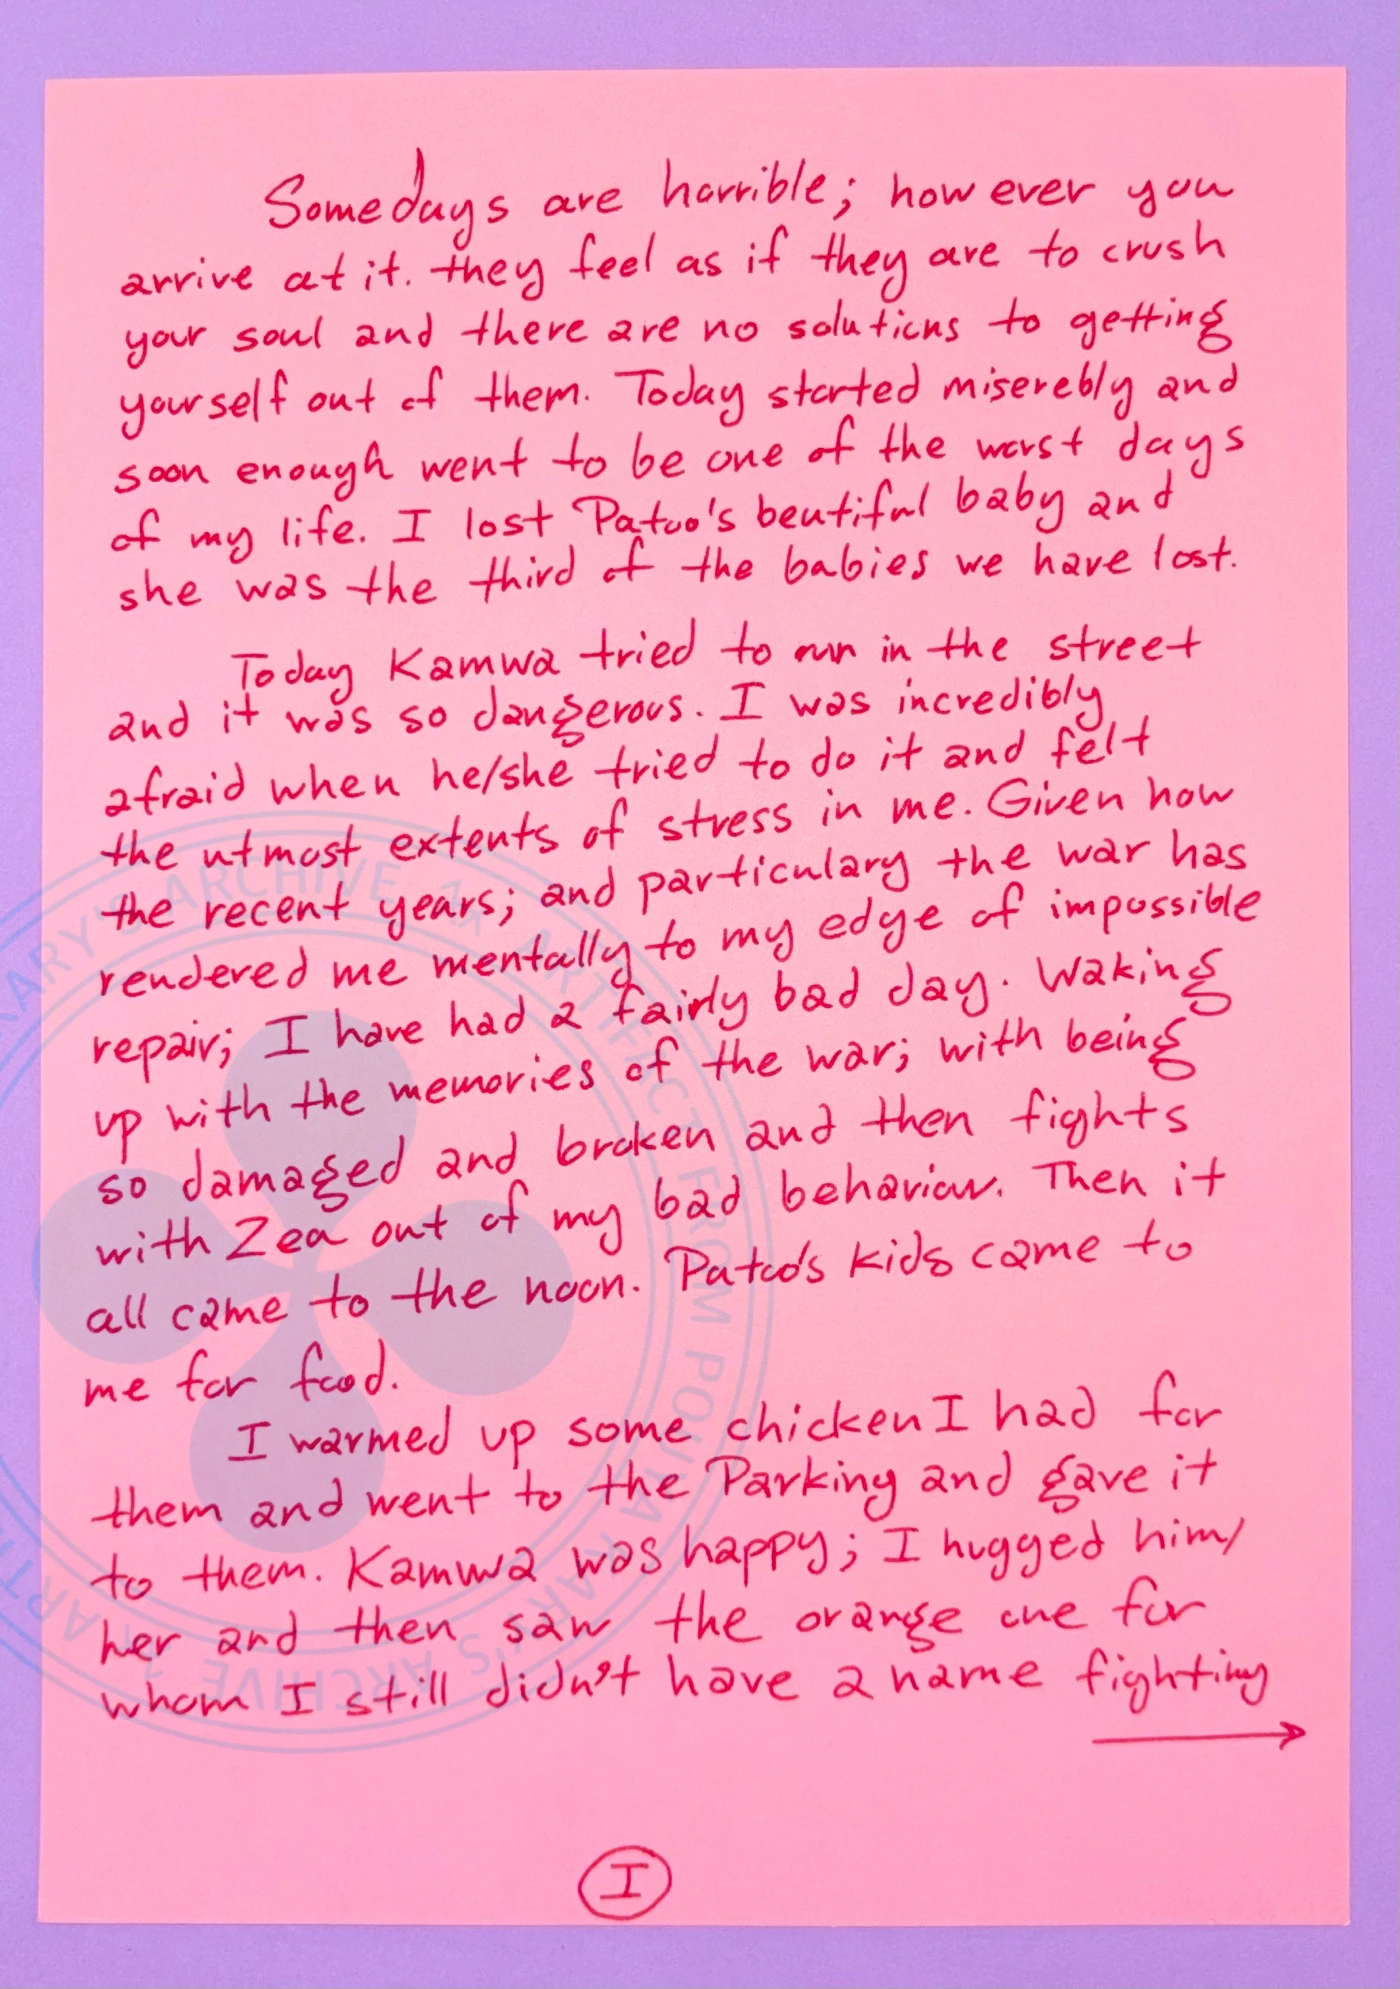 Somedays are horrible; however you
arrive at it. they feel as if they are to crush
your soul and there are no solutions to getting
yourself out of them. Today started miserebly and
soon enough went to be one of the worst days
of my life. I lost Patoo's beutiful baby and
she was the third of the babies we have lost.
Today Kamwa tried to run in the street
and it was so dangerous. I was incredibly
afraid when he/she tried to do it and felt
the utmost extents of stress in me. Given how
the recent years; and particulary the war has
rendered me mentally to my edge of impossible
repair; I have had a fairly bad day. Waking
up with the memories of the war; with being
so damaged and broken and then fights
with Zea out of my bad behaviour. Then it
all came to the noon. Patoo's kids came to
me for food.
I warmed up some chicken I had for
them and went to the Parking and gave it
to them. Kamwa was happy; I hugged him/
her and then saw the orange one for
whom I still didn't have a name fighting
I